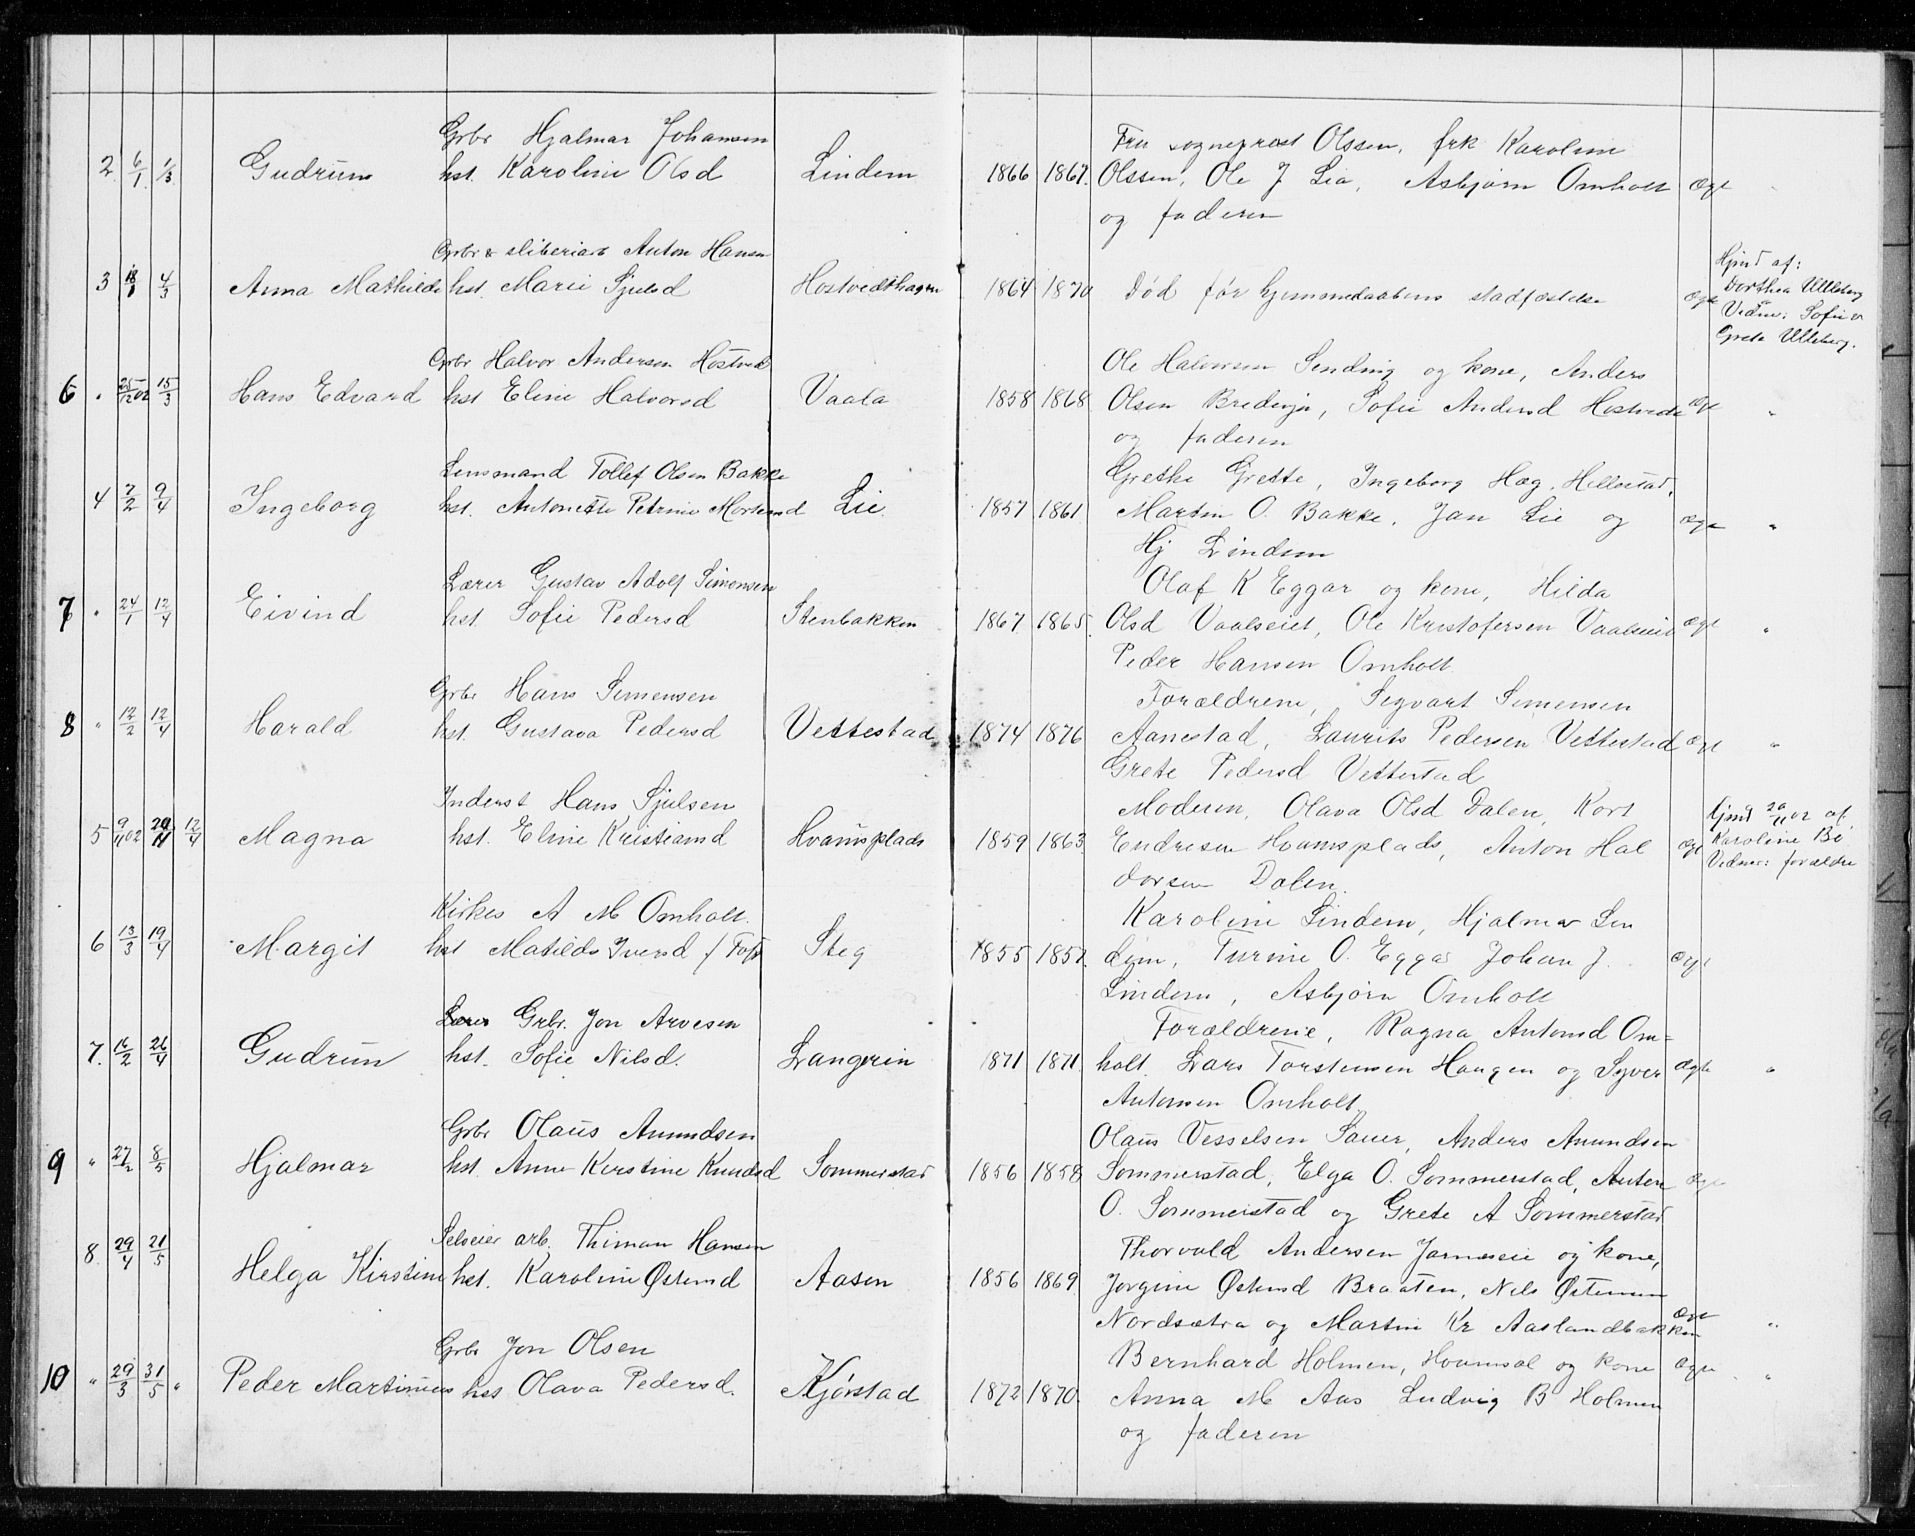 Grbr Hjalmar Johansen
Fru sogneprest Olssen, frk Karoline
2 6/1 1/3 Gudrun hst. Karoline Olsd Lindem 1866 1867 Olssen, Ole J Lia, Asbjørn Omholt ægt
og faderen
Grbr & sliberiarb Anton Hansen
Hjmd af:
3 18/1 4/3 Anna Mathilde hst. Marie Sjulsd Hostvedthagen 1864 1870 Død før hjemmedaabens stadfæstelse ægte Dorthea Ulleberg
Vedne: Sofie
Grete Ulleberg.
Grbr Halvor Andersen Hostvedt
Ole Halvorsen Sending og kone, Anders
6 " 25/12 02 15/3 Hans Edvard hst Eline Halvorsd Vaala 1858 1868 Olsen Bredvja, Sofie Andersd Hostvedt ægt "
og faderen
Lensmand Tollef Olsen Bakke
Grethe Grette, Ingeborg Hæg. Hillestad,
4 7/2 9/4 Ingeborg hst. Antonette Petrine Mortensd Lie 1857 1861 Martin O. Bakke, Jan Lie og ægte "
Hj Lindem
Lærer Gustav Adolf Simensen
Olaf K Eggar og kone, Hilda
7 " 24/1 12/4 Eivind hst. Sofie Pedersd Stenbakken 1867 1865 Olsd Vaalseiet, Ole Kristofersen Vaalseiet ægt "
Peder Hansen Omholt
Grbr Hans Simensen
Forældrene, Segvart Simensen
8 " 12/2 12/4 Harald hst. Gustava Pedersd Vettestad 1874 1876 Aanestad, Laurits Pedersen Vettestad ægt "
Grete Pedersd Vettestad
Inderst Hans Sjulsen
Moderen, Olava Olsd Dalen, Kort Hjmd 20/11 02 af
5 9/11 02 20/11 12/4 Magna hst. Eline Kristiansd Hvamsplads 1859 1863 Endresen Hvamsplads, Anton Hal ægt Karoline Bø
Vedner: forældre
dorsen Dalen.
Kirkes A M Omholt
Karoline Lindem, Hjalmar Lin
6 13/3 19/4 Margit hst Matilde Iversd f Toft Steg 1855 1857. dem, Turine O. Eggar Johan J. ægt
Lindem, Asbjørn Omholt
Grbr. Jon Arvesen
Forældrene, Ragna Antonsd Om=
7. 16/2 26/4 Gudrun hst. Sofie Nilsd. Langerin 1871 1871. holt. Lars Torstensen Haugen og Syver ægte "
Antonsen Omholt
Grbr Olaus Amundsen
Olaus Vesselsen Sauer, Anders Amundsen
9 " 27/2 8/5 Hjalmar hst. Anne Kirstine Knudsd Sommerstad 1856 1858 Sommerstad, Elga O. Sommerstad, Anten ægte
O. Sommerstad og Grete A Sommerstad
Selveier arb. Thiman Hansen
Thorvald Andersen Jarneseie og kone,
8. 29/4 21/5 Helga Kirstine hst. Karoline Østensd Aasen 1856 1869 Jørgine Østensd Braaten, Nils Østensen
Nordsætra og Martin Kr Aaslandbakken ægt "
Grbr Jon Olsen
Bernhard Holmen, Hvamsal og kone ægte "
10 " 29/3 31/5 " Peder Martinius hst Olava Pedersd. Kjørstad 1872 1870. Anna M Aas Ludvig B Holmen
og faderen